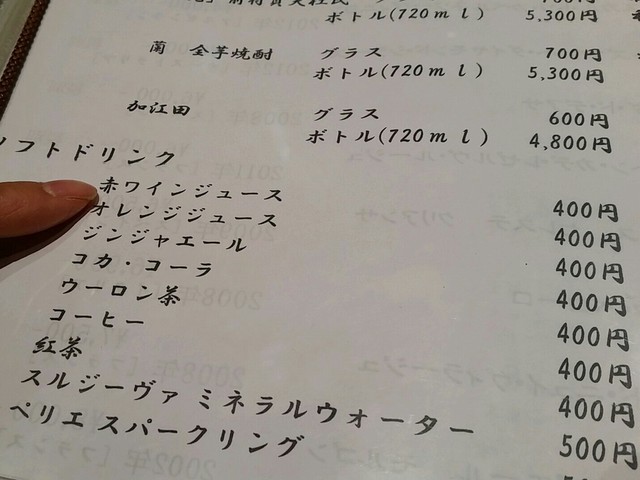 ボトル(720ml) 5,300円
蘭 全芋焼酎 グラス 700円
ボトル(720ml) 5,300円
加江田 グラス 600円
ボトル(720ml) 4,800円
ソフトドリンク
赤ワインジュース 400円
オレンジジュース 400円
ジンジャエール 400円
コカ・コーラ 400円
ウーロン茶 400円
コーヒー 400円
紅茶 400円
スルジーヴァ ミネラルウォーター 500円
ペリエ スパークリング